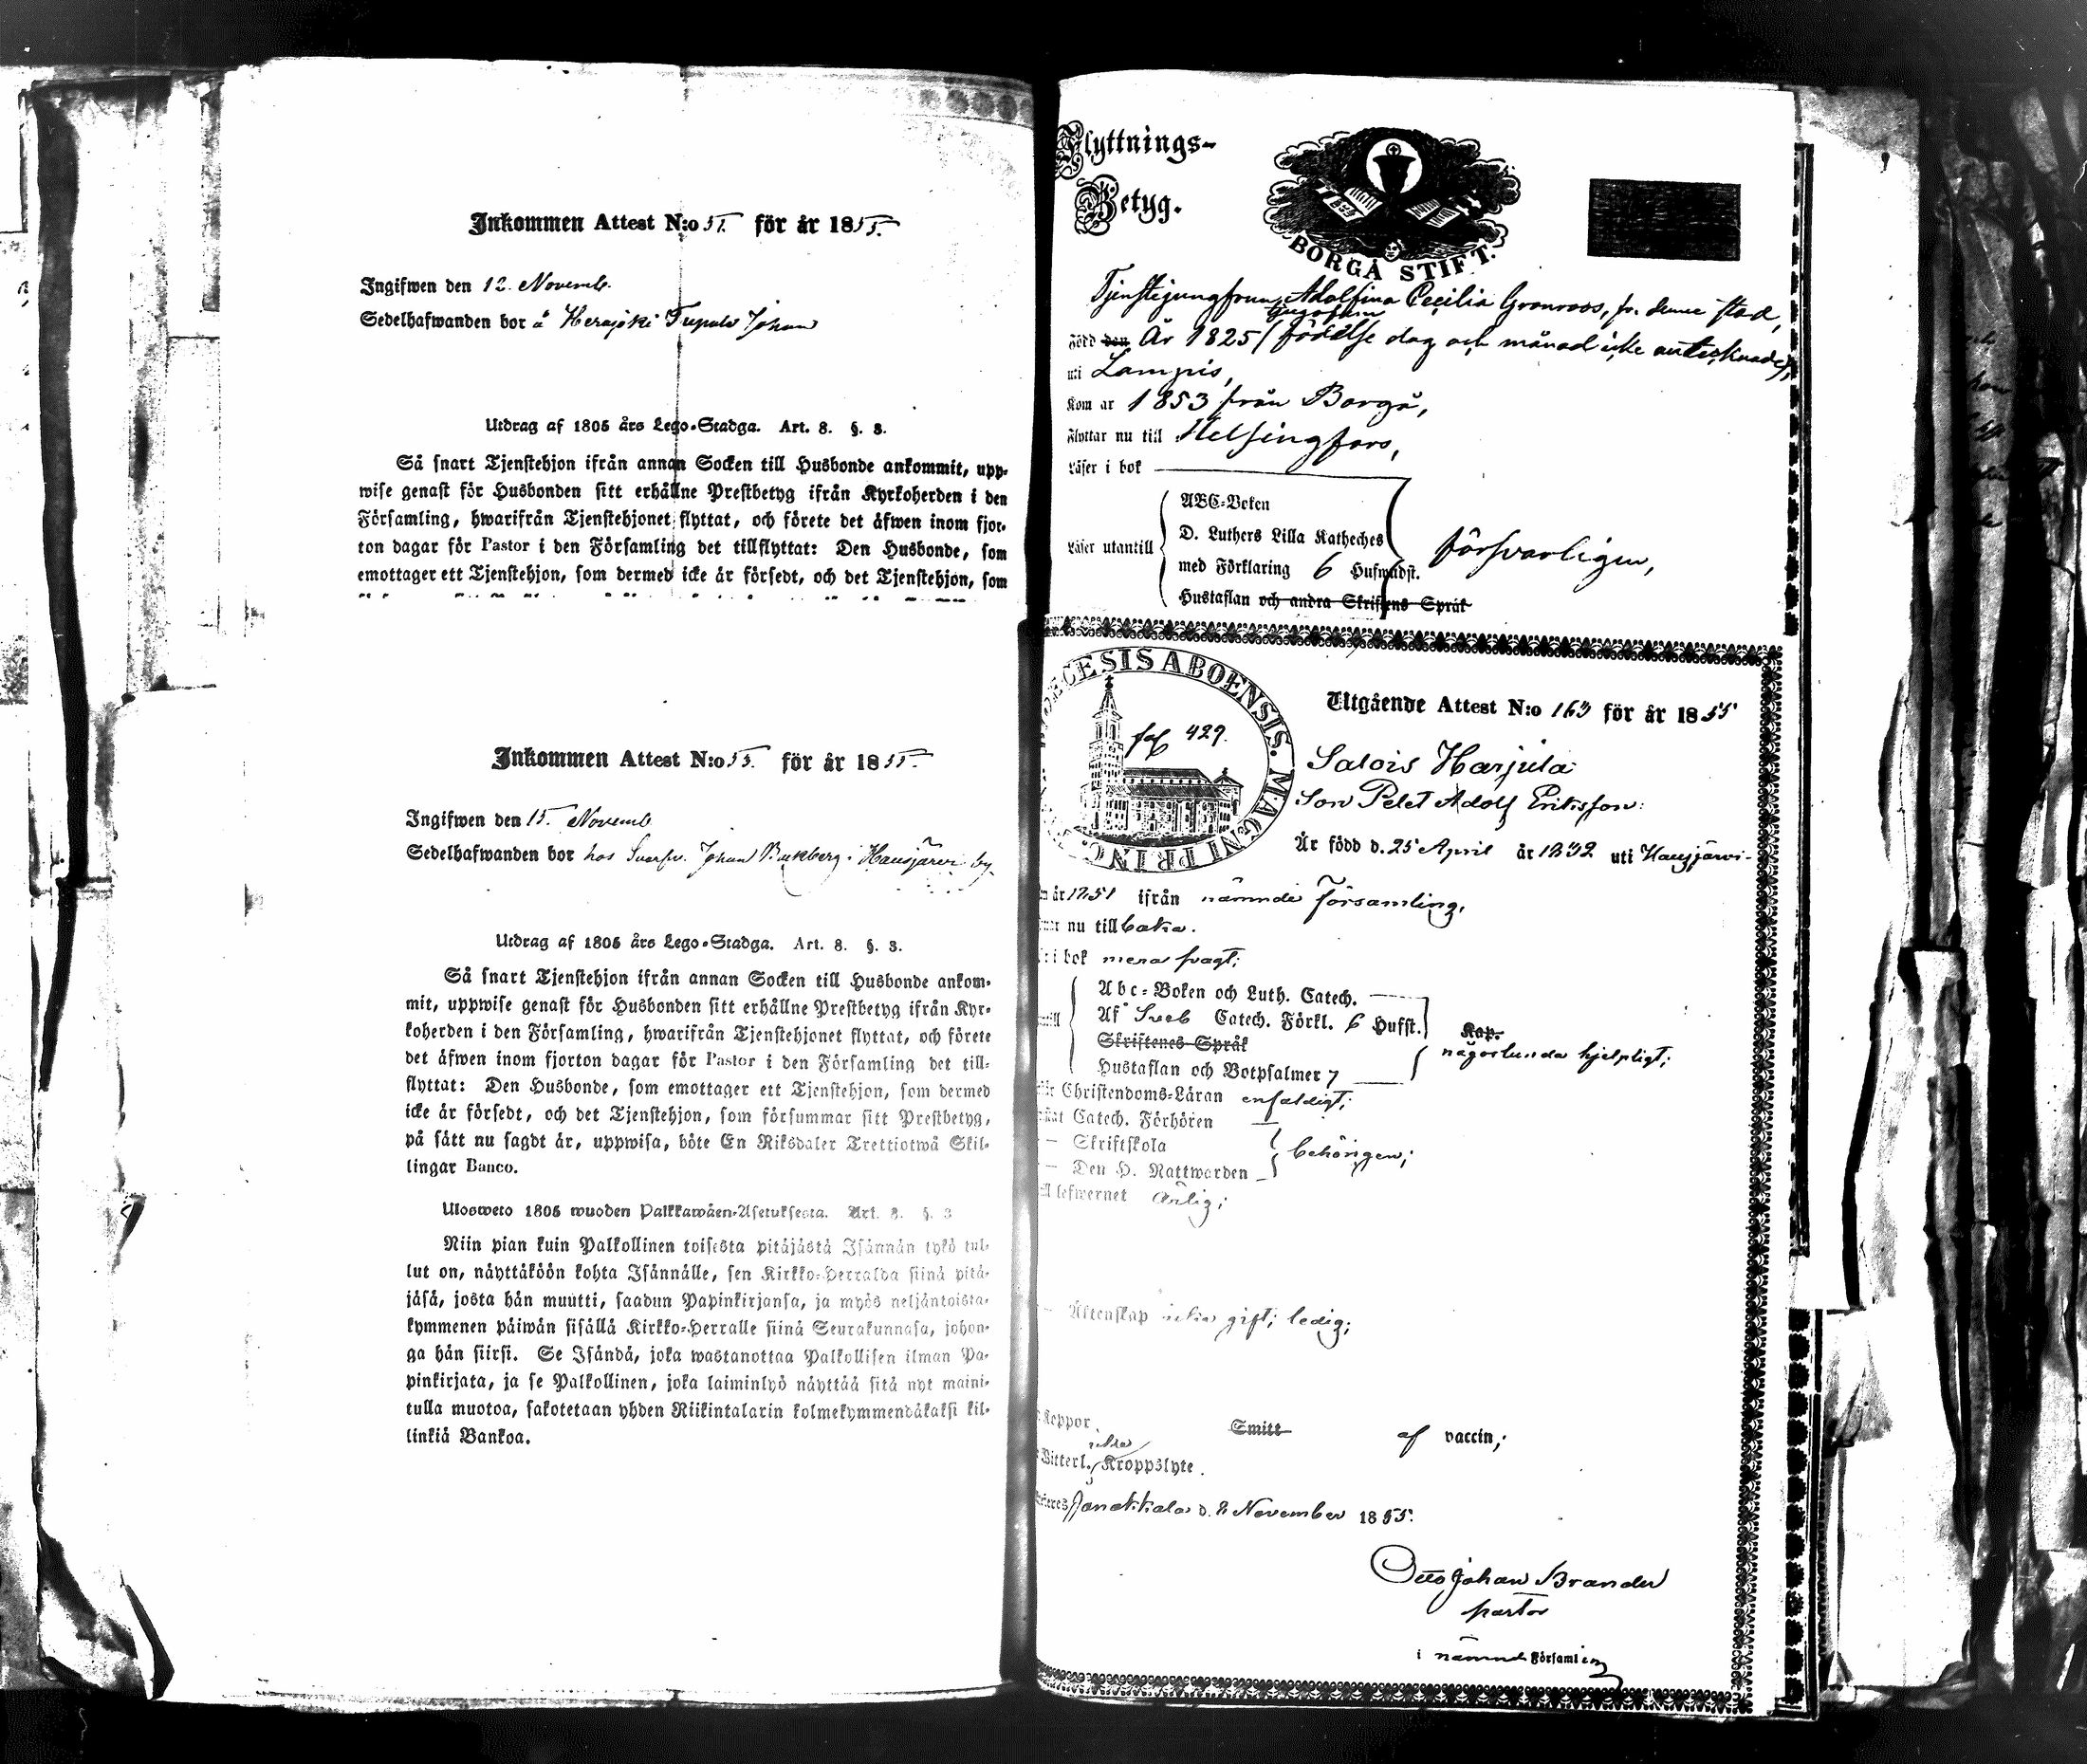 Inkommen Attest N:o 51. för år 1855.
Ingifwen den 12. Novemb.
Sedelhafwanden bor å Herajoki Johan
Utdrag af 1805 års Lego-Stadga. Art. 8. §. 3.
Så snart Tjenstehjon ifrån annan Socken till Husbonde ankommit, upp-
wise genast för Husbonden sitt erhållne Prestbetyg ifrån Kyrkoherden i den
Församling, hwarifrån Tjenstehjonet flyttat, och förete det äfwen inom fjor-
ton dagar för Pastor i den Församling det tillflyttat: Den Husbonde, som
emottager ett Tjenstehjon, som dermed icke är försedt, och det Tjenstehjon, som
Inkommen Attest N:o 53. för år 1855.
Ingifwen den 15. Novemb
Sedelhafwanden bor hos Johan i Hausjärvi by
Utdrag af 1805 års Lego-Stadga. Art. 8. §. 3.
Så snart Tjenstehjon ifrån annan Socken till Husbonde ankom-
mit, uppwise genast för Husbonden sitt erhållne Prestbetyg ifrån Kyr-
koherden i den Församling, hwarifrån Tjenstehjonet flyttat, och förete
det äfwen inom fjorton dagar för Pastor i den Församling det till-
flyttat: Den Husbonde, som emottager ett Tjenstehjon, som dermed
icke är försedt, och det Tjenstehjon, som försummar sitt Prestbetyg,
på sätt nu sagdt är, uppwisa, böte En Riksdaler Trettiotwå Skil-
lingar Banco.
Ulosweto 1805 wuoden Palkkawäen-Asetuksesta. Art. 8. §. 3
Niin pian kuin Palkollinen toisesta pitäjästä Isännän tykö tul-
lut on, näyttäköön kohta Isännälle, sen Kirkko-Herralda siinä pitä-
jäsä, josta hän muutti, saadun Papinkirjansa, ja myös neljäntoista-
kymmenen päiwän sisällä Kirkko-Herralle siinä Seurakunnasa, johon-
ga hän siirsi. Se Isändä, joka wastanottaa Palkollisen ilman Pa-
pinkirjata, ja se Palkollinen, joka laiminlyö näyttää sitä nyt maini-
tulla muotoa, sakotetaan yhden Riikintalarin kolmekymmendäkaksi kil-
linkiä Bankoa.
Flyttnings-
Betyg.
BORGÅ STIFT.
Tjenstejungfrun Adolfina Cecilia Gronroos, fr. denne stad,
Född den År 1825 / födelse dag och månad icke antecknade/,
uti Lampis,
Kom år 1853 från Borgå,
Flyttar nu till Helsingfors,
Läser i bok
Läser utantill
ABC-Boken
D. Luthers Lilla Katheches
med Förklaring 6 Hufwudst.
Hustaflan och andra Skriftens Språk
försvarligen,
DIOECESIS ABOENSIS. MAGNI PRINC.
fol 429.
Utgående Attest N:o 163 för år 1855
Salois Harjula
Son Adolf Eriksson
Är född d. 25 April år 1832 uti Hausjärvi
år 1851 ifrån nämnde Församling,
nu tillbaka.
i bok mera svagt;
Abc-Boken och Luth. Catech.
Af Sveb Catech. Förkl. 6 Hufst.
Skriftenes Språk
Kap.
Hustaflan och Botpsalmer 7
någorlunda hjelpligt;
Christendoms-Läran enfaldigt;
Catech. Förhören
— Skriftskola
— Den H. Nattwarden
behörigen;
lefwernet ärlig;
— Äktenskap icke gift; ledig;
Koppor
Smitt
af vaccin;
icke
Kroppslyte.
Janakkala d. 8 November 1855.
Otto Johan Brander
pastor
i nämnd Församling